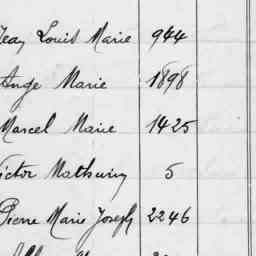 Jean Louis Marie 944
Ange Marie 1898
Marcel Marie 1425
Victor Mathurin 5
Pierre Marie Joseph 2246